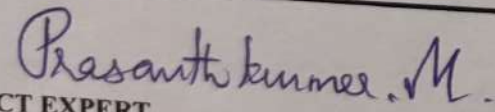 Prasanth kumar. M.
CT EXPERT